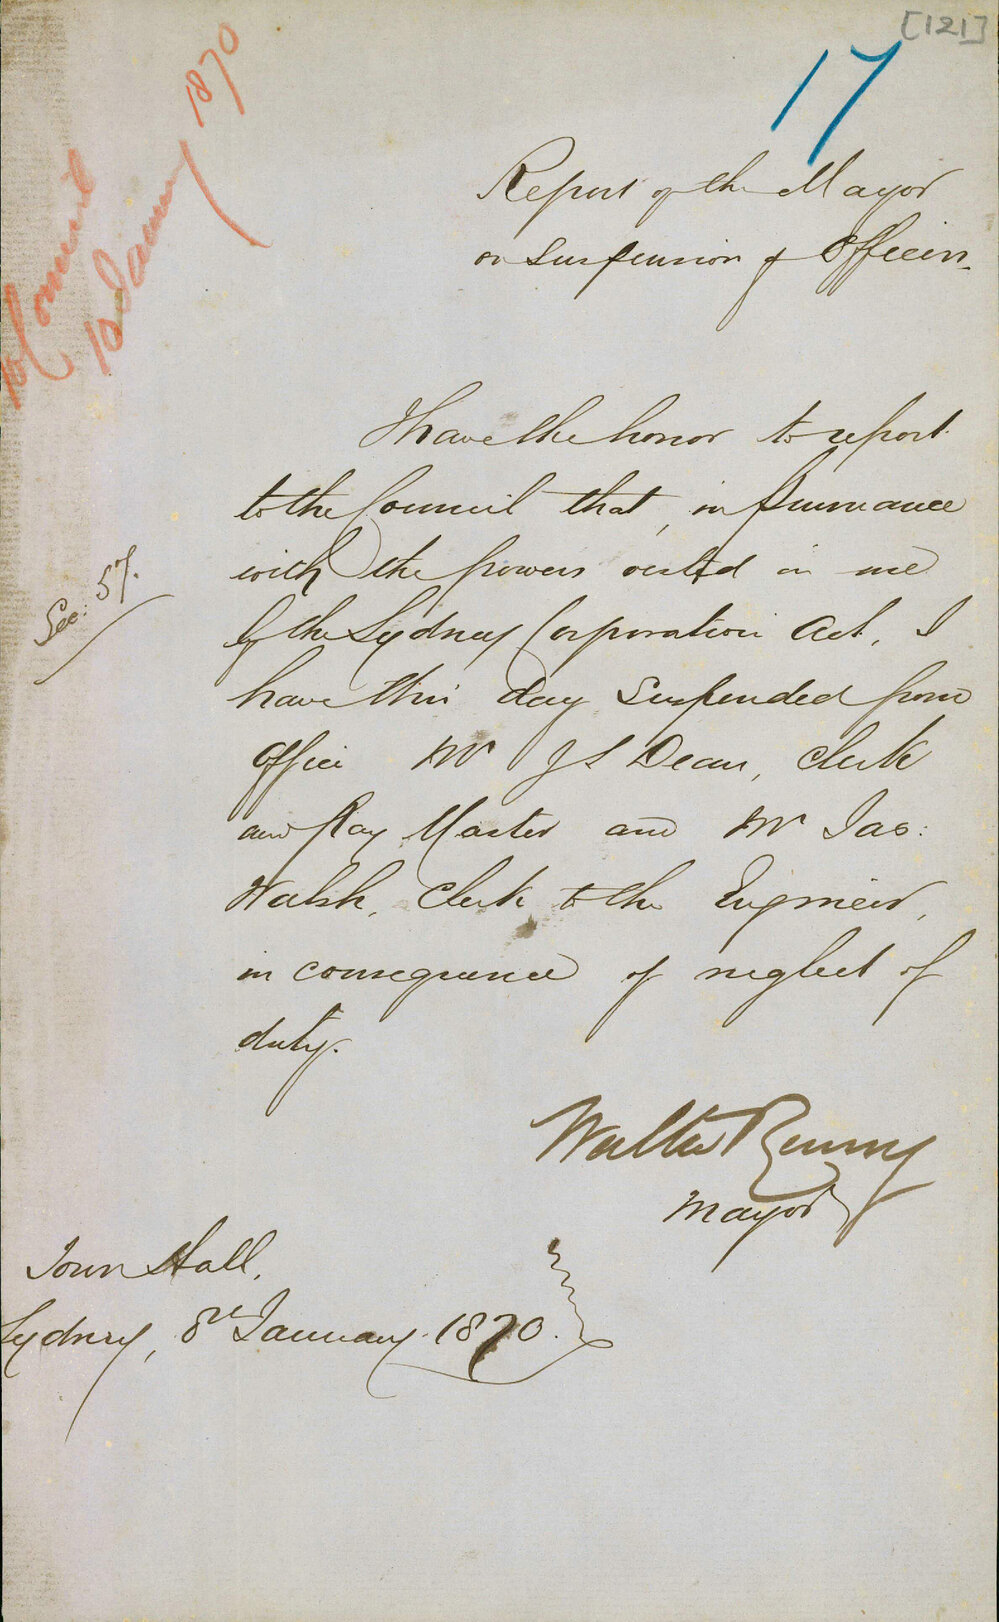 [121]
17
To Council
10 January 1870
Report of the Mayor
on Suspension of Officers.
I have the honor to report
to the Council that, in pursuance
with the powers vested in me
by the Sydney Corporation Act, I
Sec: 57.
have this day suspended from
office Mr J S Dean, Clerk
and Pay Master and Mr Jas:
Walsh, Clerk to the Engineer,
in consequence of neglect of
duty.
Walter Renny
Mayor
Town Hall,
Sydney, 8th January 1870.